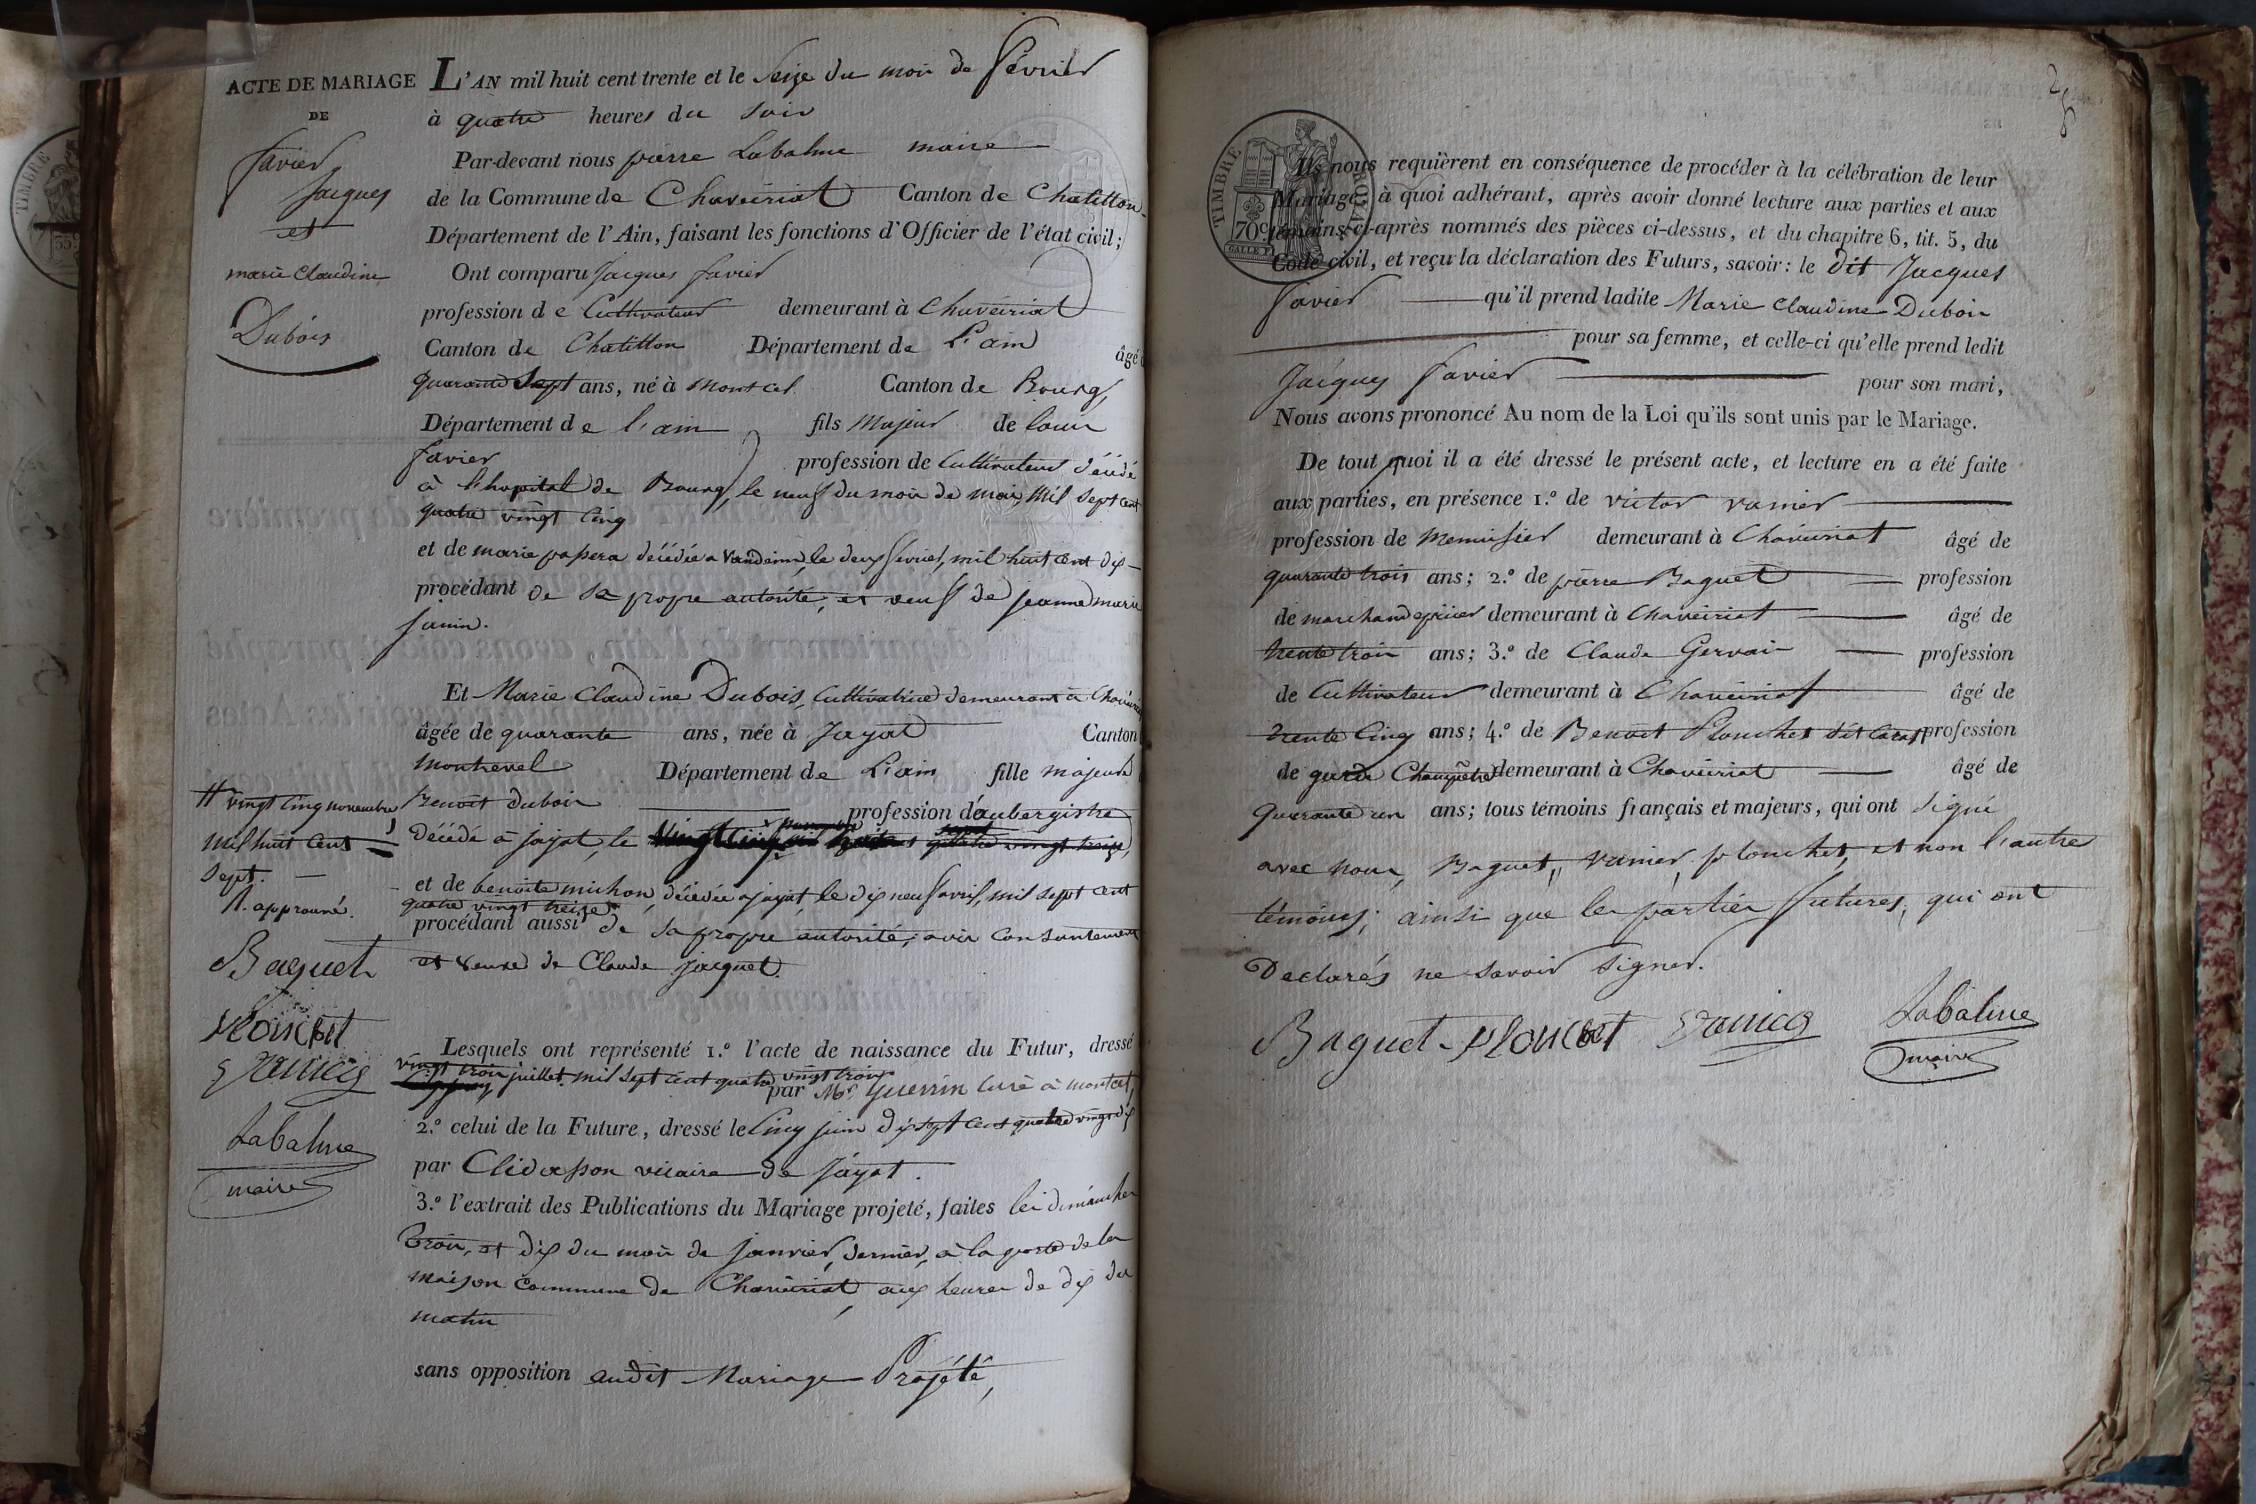 ACTE DE MARIAGE
DE
favier
Jacques
et
marie Claudine
Dubois
L'AN mil huit cent trente et le Seize du mois de février
à quatre heures du soir
Par-devant nous pierre Labalme maire
de la Commune de Chaveiriat Canton de Chatillon
Département de l'Ain, faisant les fonctions d'Officier de l'état civil;
Ont comparu Jacques favier
profession de Cultivateur demeurant à Chaveiriat
Canton de Chatillon Département de L'ain âgé
quarante Sept ans, né à Montcet Canton de Bourg,
Département de l'ain fils Majeur de louis
favier profession de Cultivateur décédé
à l'hopital de Bourg, le neuf du mois de mars, Mil sept cent
quatre vingt cinq
et de marie papera décédée a Vandeins, le deux fevrier, mil huit cent dix
procédant de sa propre autorité, et veuf de jeanne marie
janin.
Et Marie Claudine Dubois, Cultivatrice demeurant à Chaveiriat
âgée de quarante ans, née à Jayat Canton
Montrevel Département de L'ain fille majeure
Benoit dubois profession d'aubergiste
Décédé à jayat, le
et de benoite michon, décédée a jayat, le dix neuf avril, mil sept cent
quatre vingt treize
procédant aussi de sa propre autorité, avir consentement
et veuve de Claude Jacquet.
# vingt cinq novembre
mil huit cent
sept.
A. approuvé.
Baguet
Plonchet
Vanier
Labalme
maire
Lesquels ont représenté 1.º l'acte de naissance du Futur, dressé
vingt trois juillet mil sept cent quatre vingt trois
par Mr. Guerrin Curé à montcet,
2.º celui de la Future, dressé le Cinq juin dix sept cent quatre vingt dix
par Clidasson vicaire de Jayat.
3.º l'extrait des Publications du Mariage projeté, faites les dimanches
Trois, et dix du mois de janvier, dernier, à la porte de la
maison commune de Chaveiriat, aux heures de dix du
matin
sans opposition audit Mariage Projeté,
TIMBRE ROYAL
70c
Ils nous requièrent en conséquence de procéder à la célébration de leur
Mariage, à quoi adhérant, après avoir donné lecture aux parties et aux
témoins ci-après nommés des pièces ci-dessus, et du chapitre 6, tit. 5, du
Code civil, et reçu la déclaration des Futurs, savoir: le dit Jacques
favier qu'il prend ladite Marie Claudine Dubois
pour sa femme, et celle-ci qu'elle prend ledit
Jacques favier pour son mari,
Nous avons prononcé Au nom de la Loi qu'ils sont unis par le Mariage.
De tout quoi il a été dressé le présent acte, et lecture en a été faite
aux parties, en présence 1.º de victor vanier
profession de Menuisier demeurant à Chaveiriat âgé de
quarante trois ans; 2.º de pierre Baguet profession
de marchand epicier demeurant à Chaveiriat âgé de
trente trois ans; 3.º de Claude Gervais profession
de Cultivateur demeurant à Chaveiriat âgé de
trente Cinq ans; 4.º de Benoit Plonchet dit profession
de garde Champêtre demeurant à Chaveiriat âgé de
quarante un ans; tous témoins français et majeurs, qui ont signé
avec nous, Baguet, vanier, plonchet, et non l'autre
témoins; ainsi que les parties futures, qui ont
Declarés ne savoir signer.
Baguet Plonchet Vanier Labalme
maire